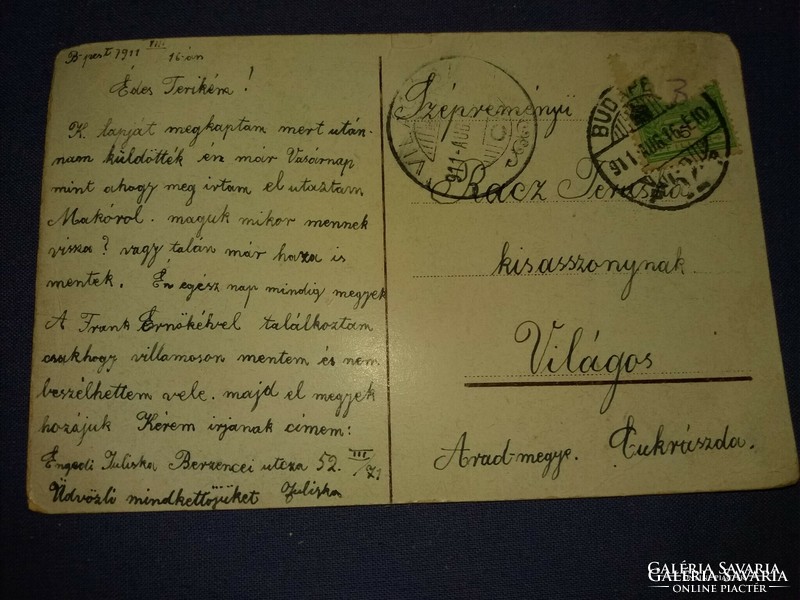 B-pest 1911 VIII. 16-án
Édes Terikém!
K. lapját megkaptam mert után-
nam küldötték én már Vasárnap
mint ahogy meg irtam el utaztam
Makóról. maguk mikor mennek
vissza? vagy talán már haza is
mentek. Én egész nap mindig megyek
A Frank Ernőkével találkoztam
csakhogy villamoson mentem és nem
beszélhettem vele. majd el megyek
hozájuk Kérem irjanak címem:
Engedi Juliska Berzencei utcza 52. III/21
Üdvözli mindkettőjüket Juliska
VILÁGOS
911 AUG
BUDAPEST
911 AUG 16
3
Szépreményü
Rácz Teruska
kisasszonynak
Világos
Arad-megye. Cukrászda.
GALÉRIA SAVARIA
ONLINE PIACTÉR